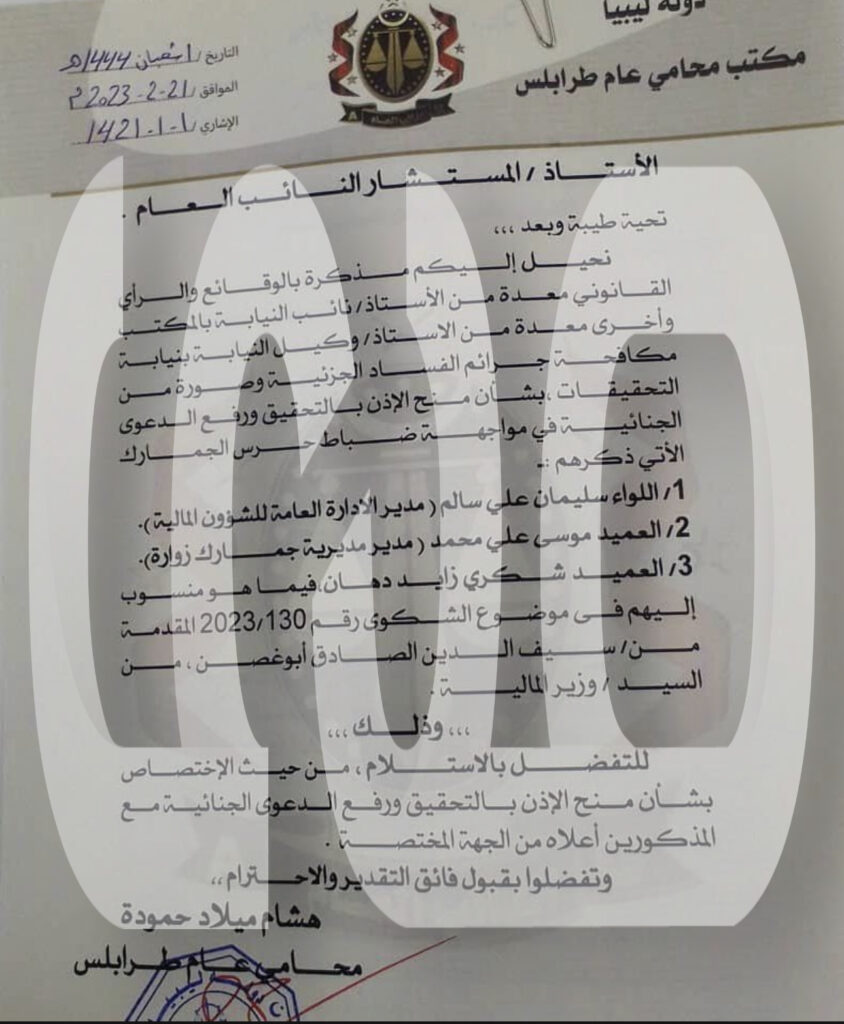 دولة ليبيا
مكتب محامي عام طرابلس
التاريخ / 1 شعبان 1444هـ
الموافق / 21-2-2023م
الإشاري / 1-1-1421
الأستاذ / المستشار النائب العام .
تحية طيبة وبعد ،،،
نحيل إليكم مذكرة بالوقائع والرأي
القانوني معدة من الأستاذ/ نائب النيابة بالمكتب
وأخرى معدة من الاستاذ/ وكيل النيابة بنيابة
مكافحة جرائم الفساد الجزئية وصورة من
التحقيقات ،بشأن منح الإذن بالتحقيق ورفع الدعوى
الجنائية في مواجهة ضباط حرس الجمارك
الأتي ذكرهم :ـ
1/ اللواء سليمان علي سالم ( مدير الادارة العامة للشؤون المالية).
2/ العميد موسى علي محمد ( مدير مديرية جمارك زوارة).
3/ العميد شكري زايد دهان،فيما هو منسوب
إليهم في موضوع الشكوى رقم 2023/130 المقدمة
من/ سيف الدين الصادق أبوغصن ، من
السيد / وزير المالية .
،،، وذلك ،،،
للتفضل بالاستلام ، من حيث الإختصاص
بشأن منح الإذن بالتحقيق ورفع الدعوى الجنائية مع
المذكورين أعلاه من الجهة المختصة .
وتفضلوا بقبول فائق التقدير والاحترام ،،
هشام ميلاد حمودة
محامي عام طرابلس